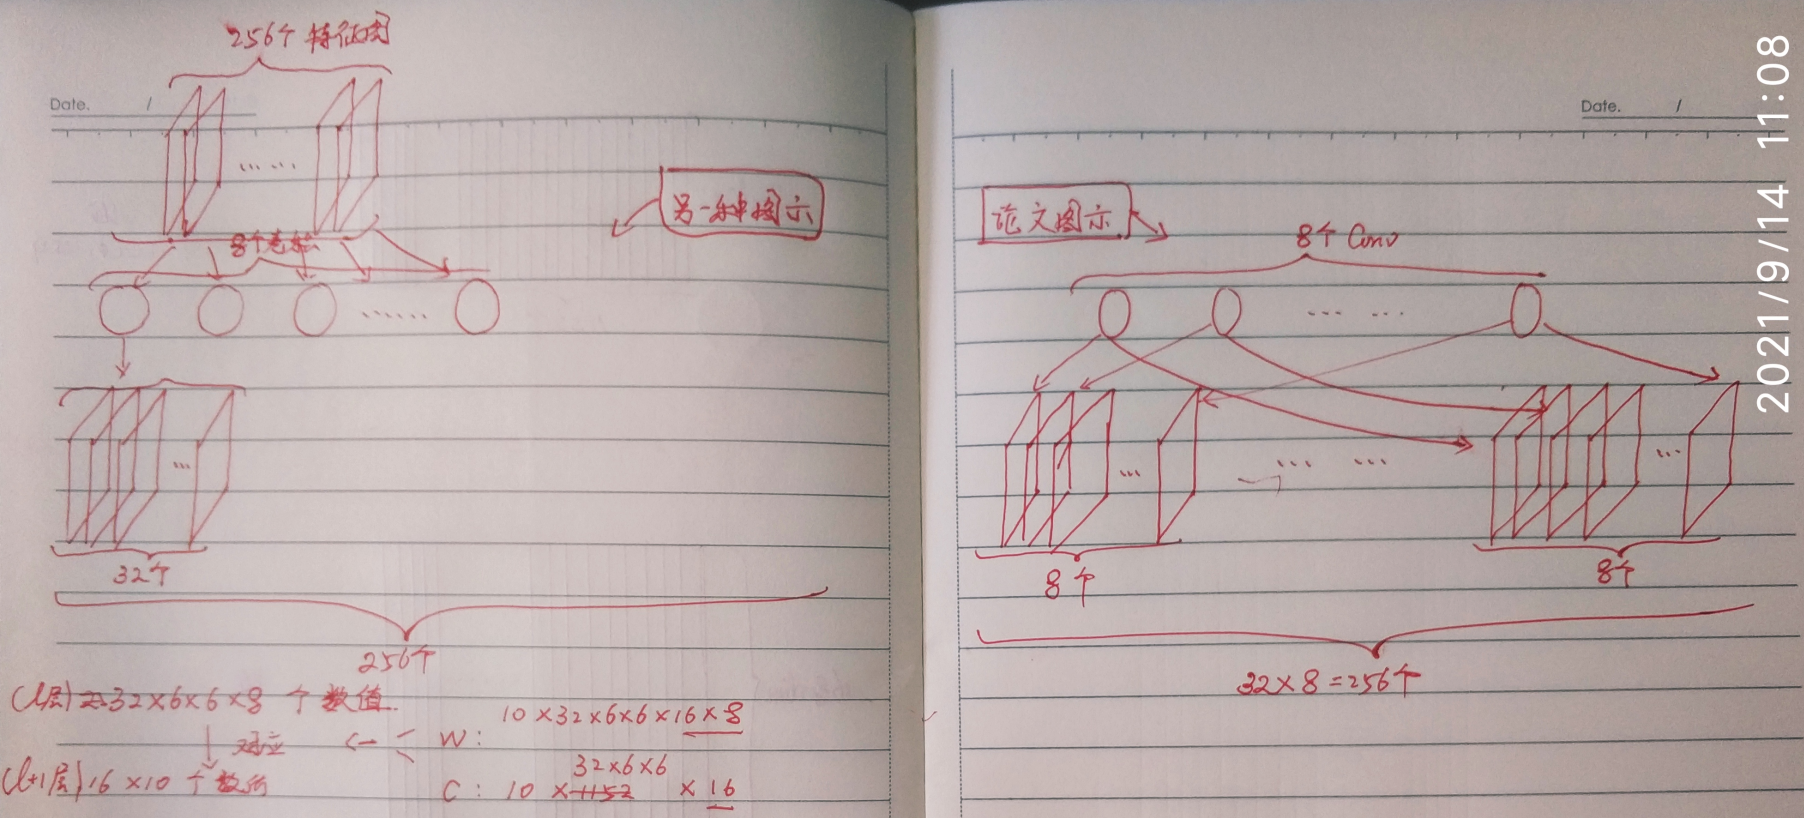 256个特征图
Date. /
8个卷积
另一种图示
32个
256个
(l层) 32×6×6×8 个数值.
对应
(l+1层) 16×10 个数值
10×32×6×6×16×8
W:
32×6×6
C: 10 ×1152 ×16
Date. /
论文图示
8个 Conv
8个
8个
32×8=256个
2021/9/14 11:08